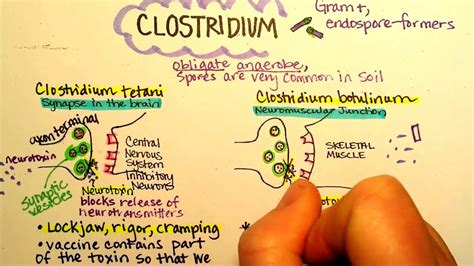 CLOSTRIDIUM
Gram+,
endospore-formers
obligate anaerobe,
Spores are very common in Soil
Clostridium tetani
Synapse in the brain
axon terminal
neurotoxin
Synaptic
vesicles
Central
Nervous
System
Inhibitory
Neurons
Neurotoxin
blocks release of
neurotransmitters
• Lockjaw, rigor, cramping
• vaccine contains part
of the toxin so that we
Clostridium botulinum
Neuromuscular Junction
SKELETAL
MUSCLE